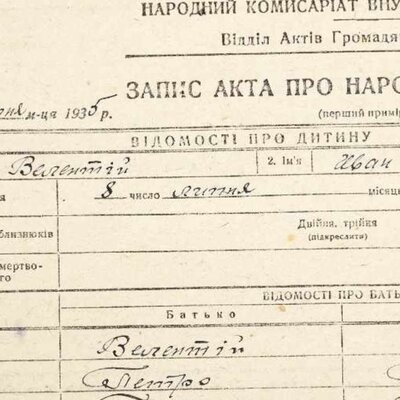 НАРОДНИЙ КОМИСАРІАТ ВНУ
Відділ Актів Громадя
ЗАПИС АКТА ПРО НАРО
м-ця 1935 р.
(перший примір
ВІДОМОСТІ ПРО ДИТИНУ
Велентій 2. Ім'я Іван
8 число липня місяц
близнюків Двійня, трійня
(підкреслити)
мертво-
го
ВІДОМОСТІ ПРО БАТЬ
Батько
Велентій
Петро